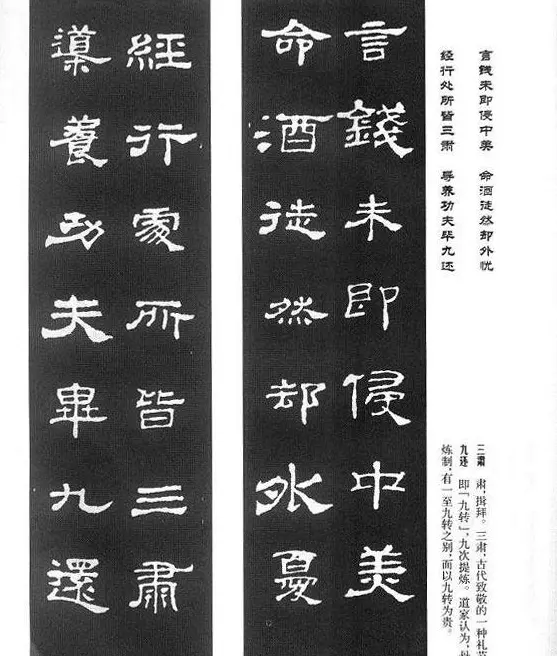 言钱未即侵中美 命酒徒然却外忧
经行处所皆三肃 导养功夫毕九还
三肃 肃，揖拜。三肃，古代致敬的一种礼
九还 即「九转」，九次提炼。道家认为，
炼制，有一至九转之别，而以九转为贵。
言錢未即侵中美
命酒徒然却外憂
經行處所皆三肅
導養功夫畢九還